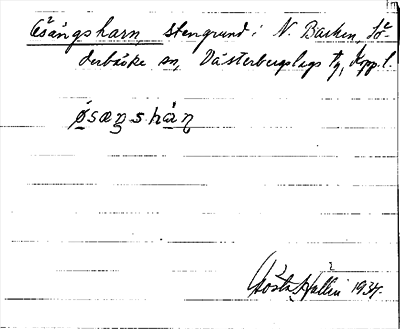 Osängsharn, stengrund i N. Barken, Sö-
derbärke sn, Västerbergslags tg, Kppl.
ósæŋsháɳ
Gösta Hallin 1934.